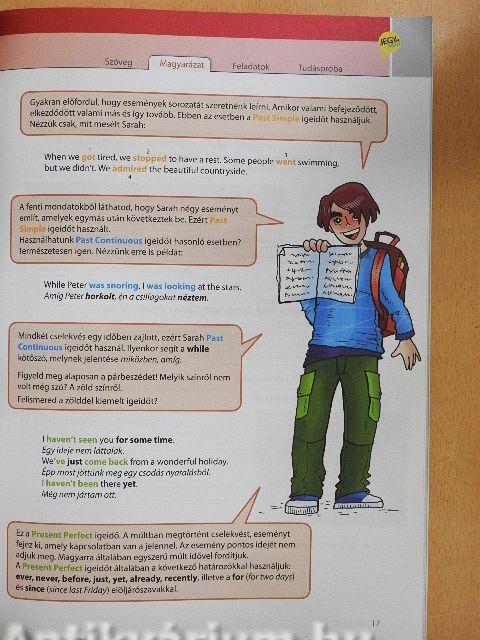 JEGYZ
Szöveg Magyarázat Feladatok Tudáspróba
Gyakran előfordul, hogy események sorozatát szeretnénk leírni. Amikor valami befejeződött,
elkezdődött valami más és így tovább. Ebben az esetben a Past Simple igeidőt használjuk.
Nézzük csak, mit mesélt Sarah:
1 2 3
When we got tired, we stopped to have a rest. Some people went swimming,
but we didn't. We admired the beautiful countryside.
4
A fenti mondatokból láthatod, hogy Sarah négy eseményt
említ, amelyek egymás után következtek be. Ezért Past
Simple igeidőt használt.
Használhatunk Past Continuous igeidőt hasonló esetben?
Természetesen igen. Nézzünk erre is példát:
While Peter was snoring, I was looking at the stars.
Amíg Peter horkolt, én a csillagokat néztem.
Mindkét cselekvés egy időben zajlott, ezért Sarah Past
Continuous igeidőt használ. Ilyenkor segít a while
kötőszó, melynek jelentése miközben, amíg.
Figyeld meg alaposan a párbeszédet! Melyik színről nem
volt még szó? A zöld színről.
Felismered a zölddel kiemelt igeidőt?
I haven't seen you for some time.
Egy ideje nem láttalak.
We've just come back from a wonderful holiday.
Épp most jöttünk meg egy csodás nyaralásból.
I haven't been there yet.
Még nem jártam ott.
Ez a Present Perfect igeidő. A múltban megtörtént cselekvést, eseményt
fejez ki, amely kapcsolatban van a jelennel. Az esemény pontos idejét nem
adjuk meg. Magyarra általában egyszerű múlt idővel fordítjuk.
A Present Perfect igeidőt általában a következő határozókkal használjuk:
ever, never, before, just, yet, already, recently, illetve a for (for two days)
és since (since last Friday) elöljárószavakkal.
17
Antikvarium.hu